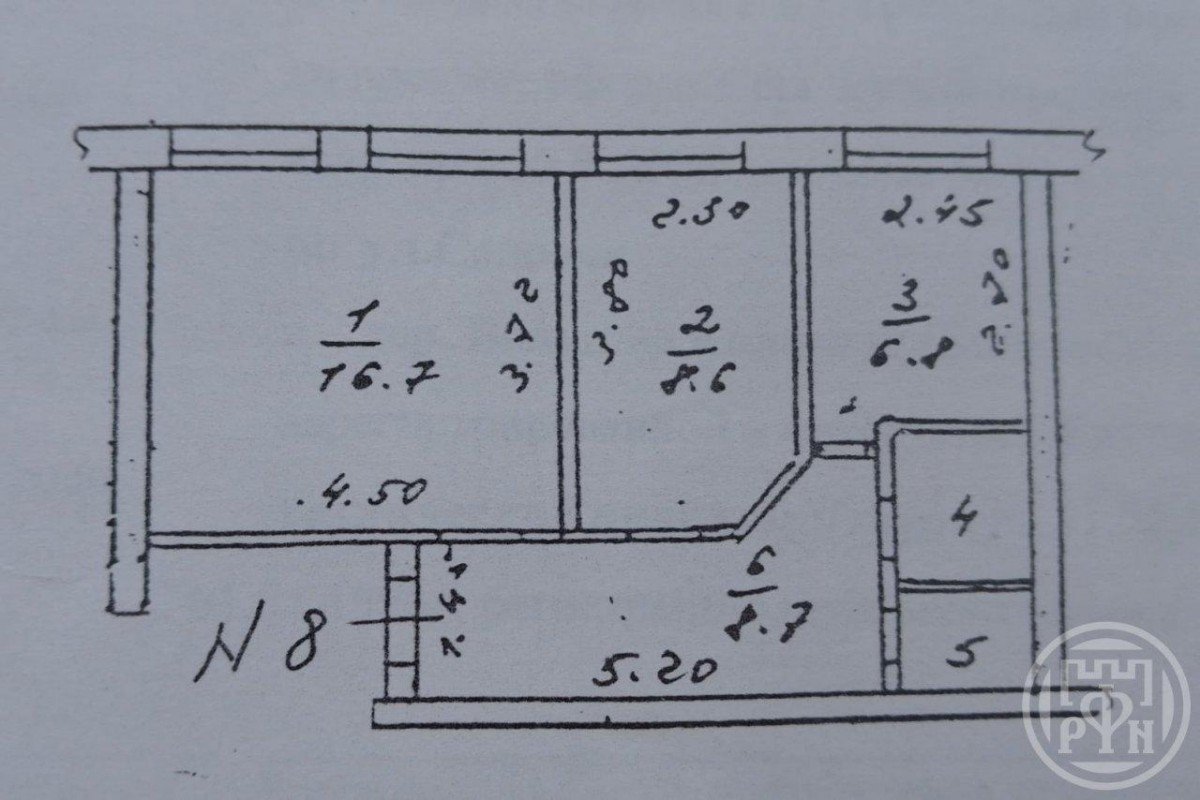 2.30
2.45
1
16.7
3.72
3.80
2
8.6
3
6.8
2.70
4.50
4
6
8.7
N 8
5.20
5
РФН